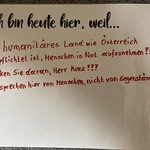 h bin heute hier, weil...
humanitäres Land wie Österreich
pflichtet ist, Menschen in Not aufzunehmen!!
ken Sie daran, Herr Kurz!!!
sprechen hier von Menschen, nicht von Gegenstän